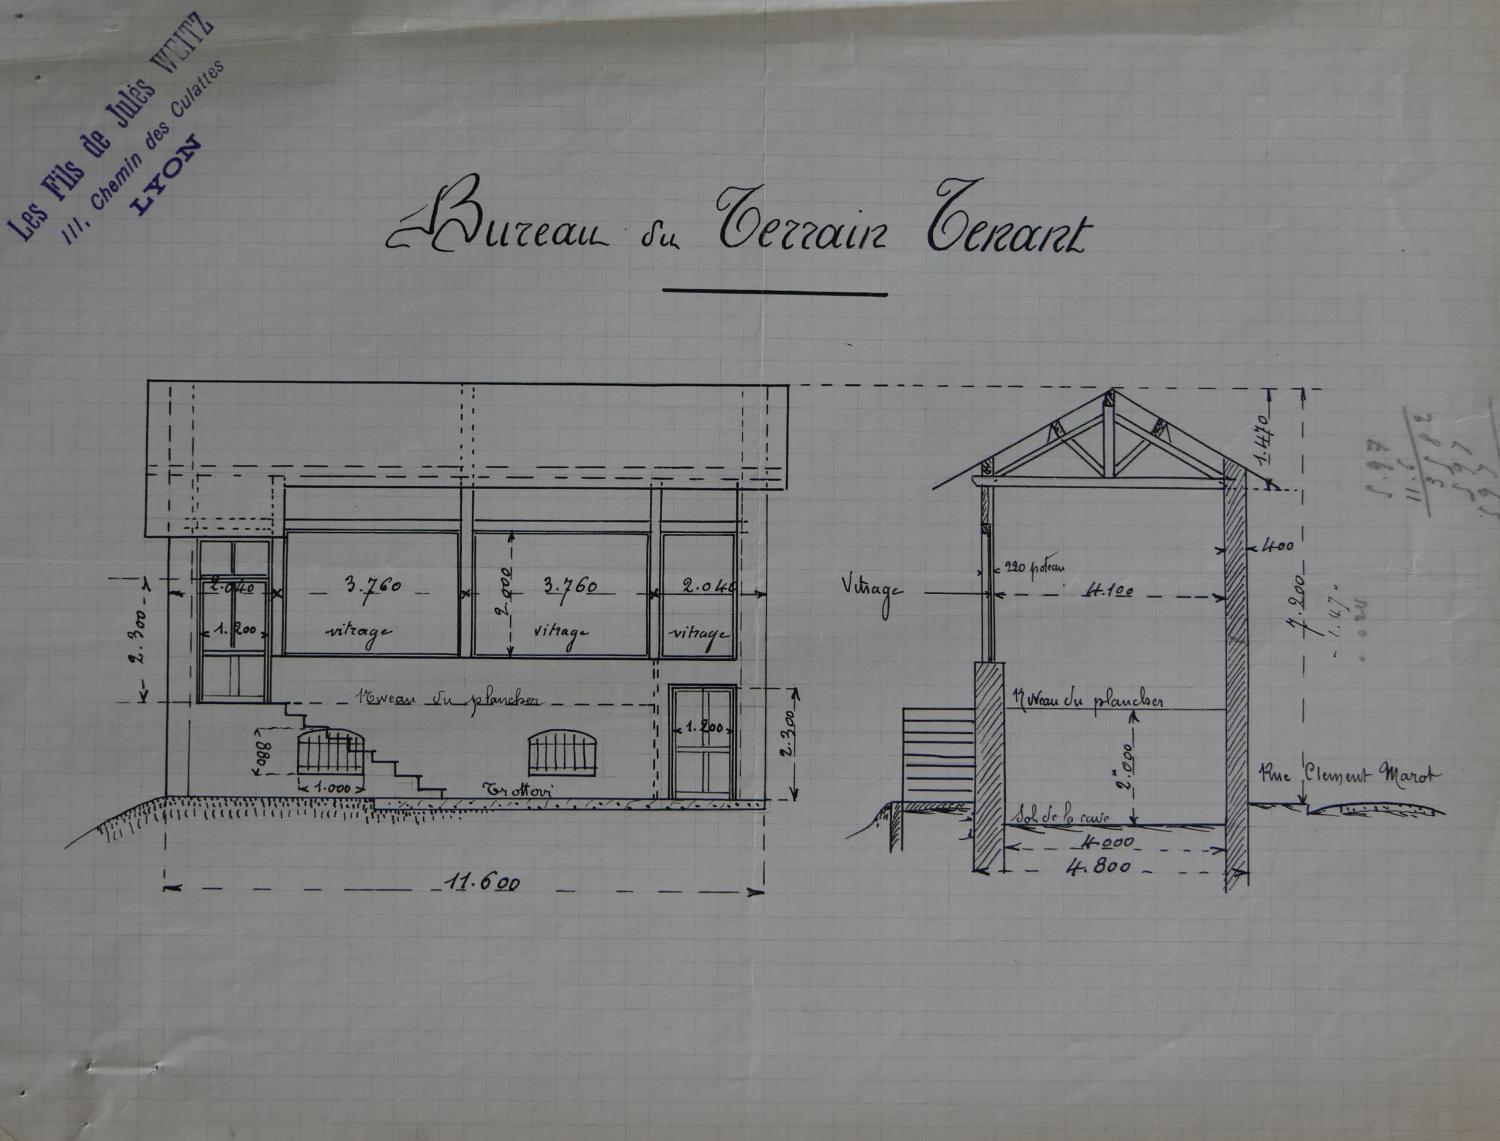 Les Fils de Jules WEITZ
111, Chemin des Culattes
LYON
Bureau du Terrain Tenant
2.300
2.040
1.200
3.760
vitrage
2.000
3.760
vitrage
2.040
vitrage
Niveau du plancher
880
1.000
Trottoir
1.200
2.300
11.600
1.470
400
220 poteau
Vitrage
4.100
7.200
Niveau du plancher
2.000
Rue Clement Marot
Sol de la cave
4.000
4.800
5.97
11.6
1.47